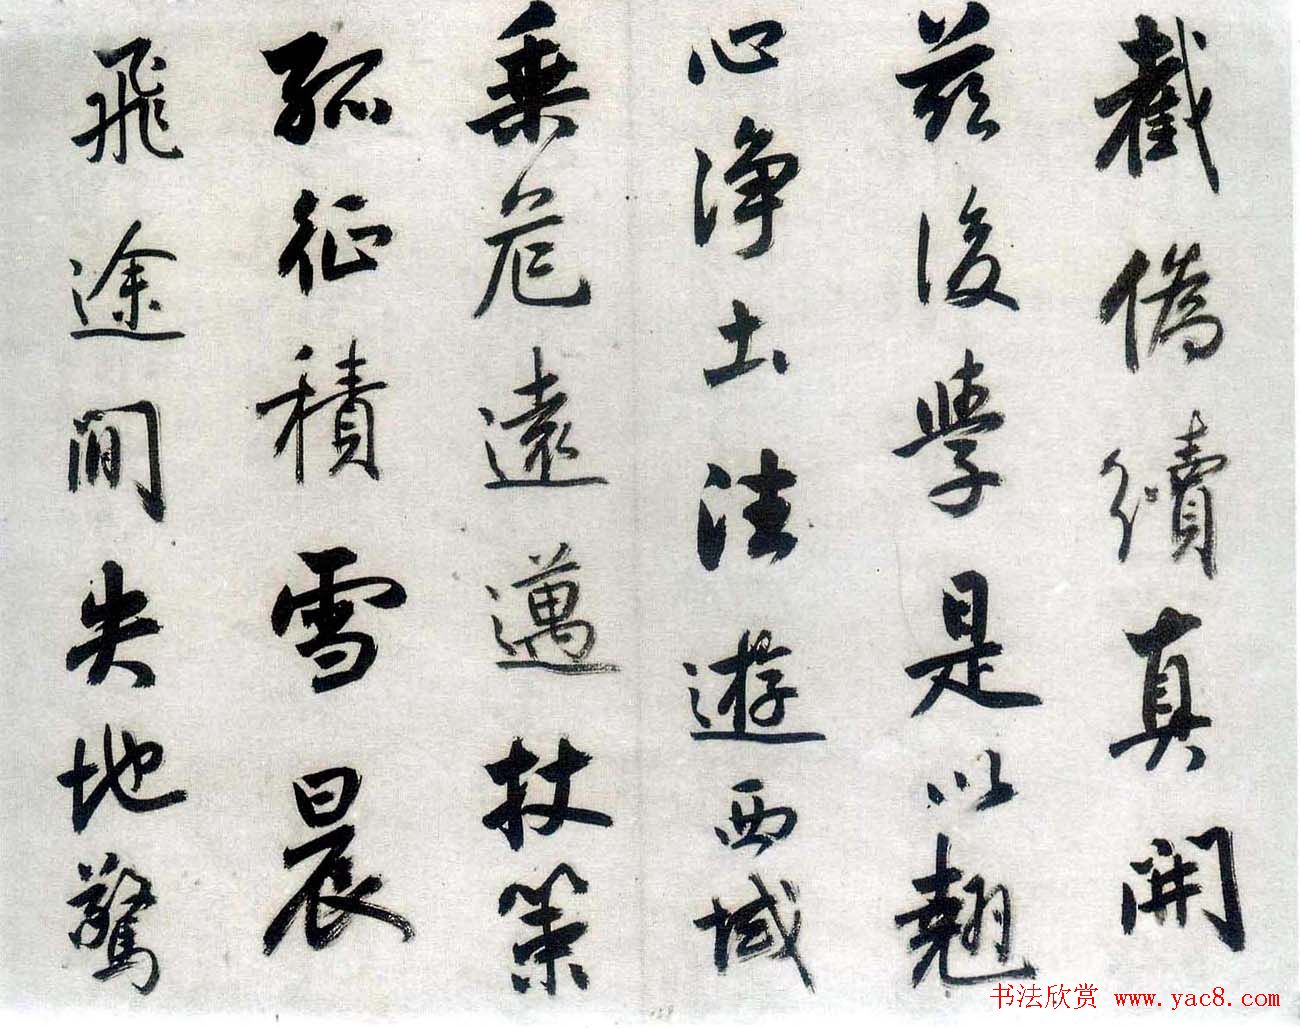 截偽續真開
茲後學是以翹
心淨土法遊西域
乗危遠邁杖策
孤征積雪晨
飛途間失地驚
书法欣赏 www.yac8.com